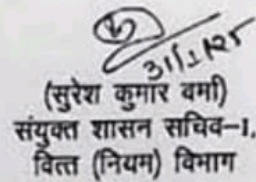 31/1/25
(सुरेश कुमार वर्मा)
संयुक्त शासन सचिव-1,
वित्त (नियम) विभाग